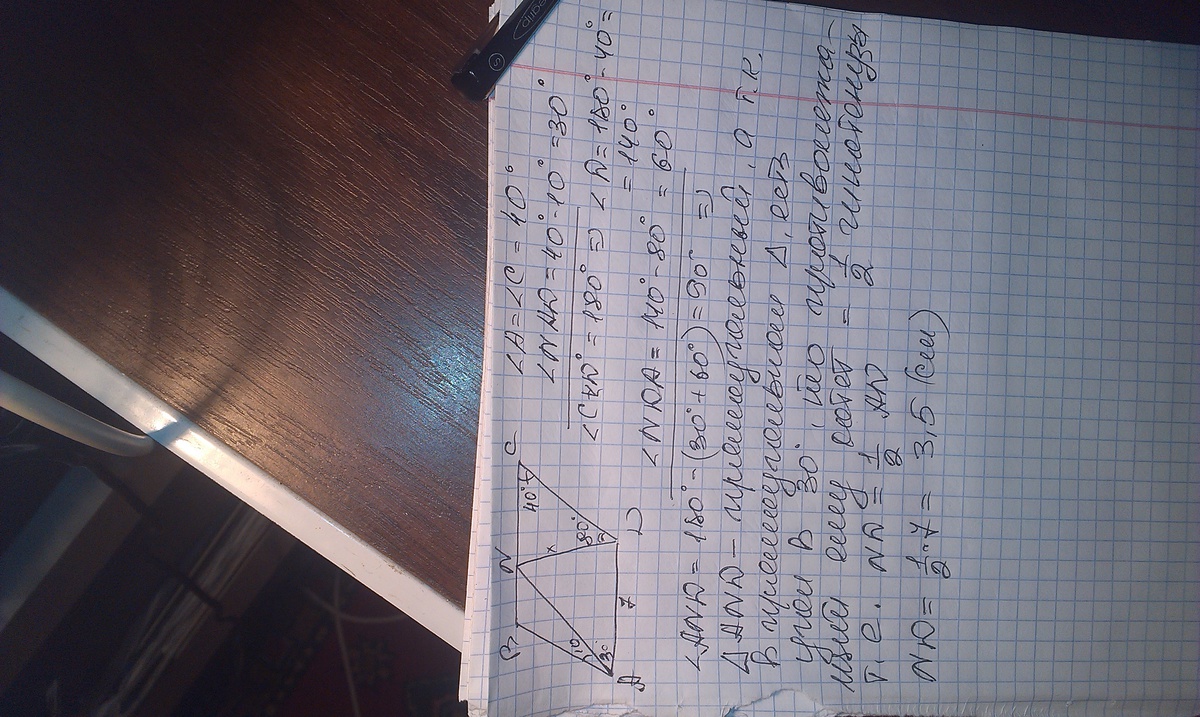 B N C
40°
x
80°
10
30°
7
A D
∠A=∠C=40°
∠NAD=40°-10°=30°
∠C+∠D°=180° => ∠D=180°-40°=
=140°
∠NDA=140°-80°=60°
∠AND=180°-(30°+60°)=90° =>
△AND - прямоугольный, а т.к.
В прямоугольном △, есть
угол в 30°, то противолежа-
щий ему катет = 1/2 гипотенузы
т.е. ND = 1/2 AD
ND = 1/2·7 = 3,5 (см)